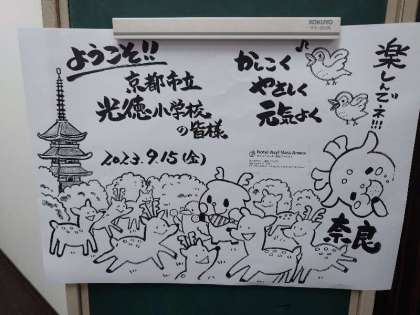 KOKUYO
ようこそ!!
京都市立
光徳小学校
の皆様
2023.9.15(金)
かしこく
やさしく
元気よく
楽しんでネ!!!
奈良